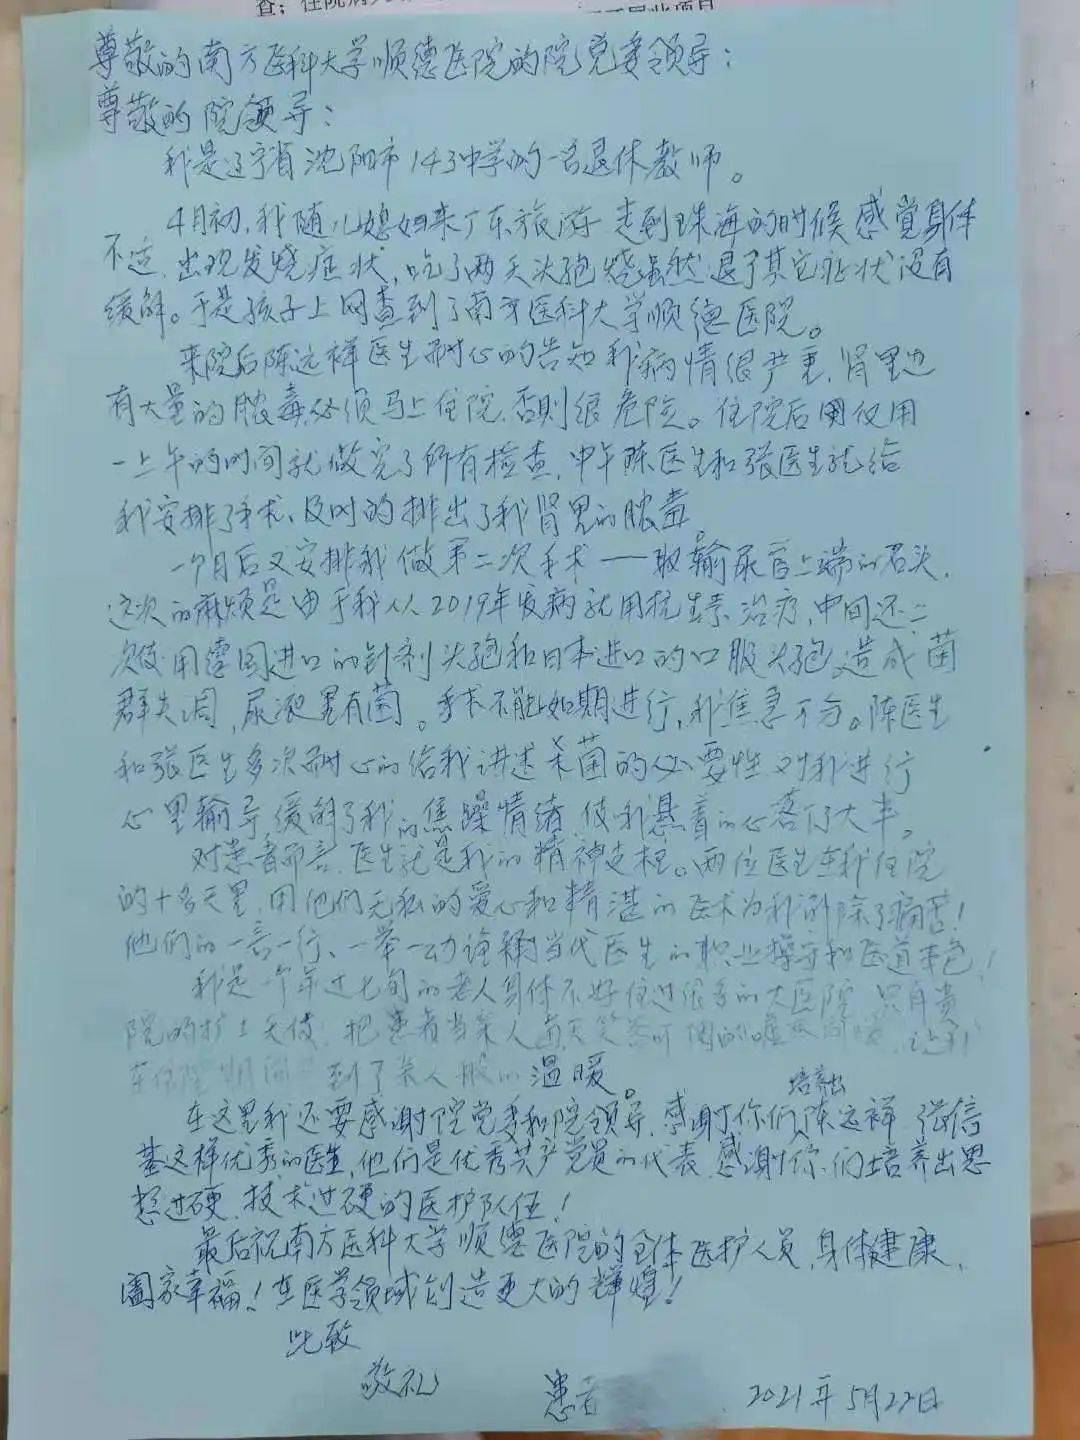 尊敬的南方医科大学顺德医院的院党委领导：
尊敬的院领导：
我是辽宁省沈阳市143中学的一名退休教师。
4月初，我随儿媳妇来广东旅游 走到珠海的时候感觉身体
不适，出现发烧症状，吃了两天头孢烧虽然退了其它症状没有
缓解。于是孩子上网查到了南方医科大学顺德医院。
来院后陈远祥医生耐心的告知我病情很严重，肾里边
有大量的脓毒必须马上住院，否则很危险。住院后用仅用
一上午的时间就做完了所有检查，中午陈医生和张医生就给
我安排了手术、及时的排出了我肾里的脓毒
一个月后又安排我做第二次手术——取输尿管上端的石头，
这次的麻烦是由于我从2019年发病就用抗生素治疗，中间还二
次使用德国进口的针剂头孢和日本进口的口服头孢造成菌
群失调，尿液里有菌。手术不能如期进行，我焦急万分。陈医生
和张医生多次耐心的给我讲述杀菌的必要性 对我进行
心里输导缓解了我的焦躁情绪 使我悬着的心落了大半。
对患者而言，医生就是我的精神支柱。两位医生在我住院
的十多天里，用他们无私的爱心和精湛的医术为我消除了痛苦！
他们的一言一行、一举一动诠释当代医生的职业操守和医道本色！
我是一个年过七旬的老人身体不好住过很多的大医院 只有贵
院的护士天使，把患者当亲人每天笑容可掬的嘘
在住院期间 到了亲人般的温暖。
培养出
在这里我还要感谢院党委和院领导，感谢你们陈远祥 张信
基这样优秀的医生，他们是优秀共产党员的代表，感谢你们培养出思
想过硬，技术过硬的医护队伍！
最后祝南方医科大学顺德医院的全体医护人员，身体健康，
阖家幸福！在医学领域创造更大的辉煌！
此致
敬礼
患者 2021年5月22日